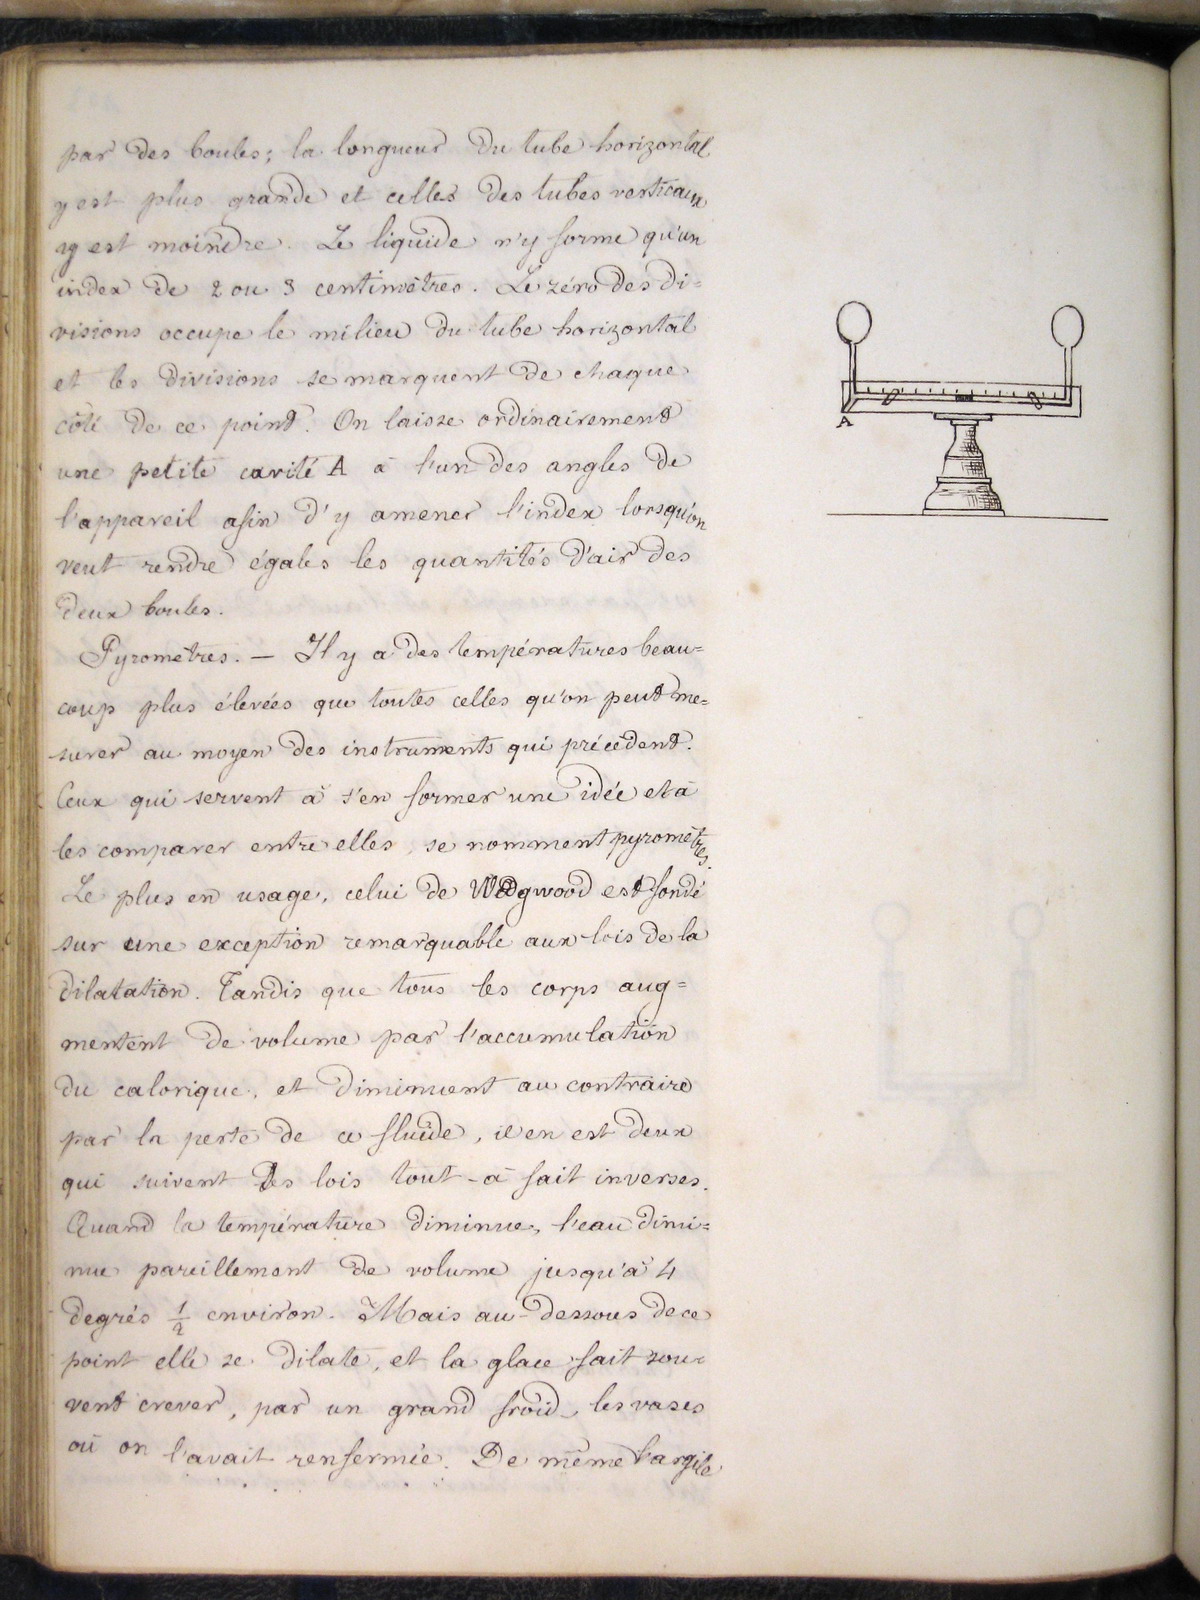 par des boules; la longueur du tube horizontal
y est plus grande et celles des tubes verticaux
y est moindre. Le liquide n'y forme qu'un
index de 2 ou 3 centimètres. Le zéro des di=
visions occupe le milieu du tube horizontal
et les divisions se marquent de chaque
côté de ce point. On laisse ordinairement
une petite cavité A à l'un des angles de
l'appareil afin d'y amener l'index lorsqu'on
veut rendre égales les quantités d'air des
deux boules.
Pyromètres. — Il y a des températures beau=
coup plus élevées que toutes celles qu'on peut me=
surer au moyen des instruments qui précèdent.
Ceux qui servent à s'en former une idée et à
les comparer entre elles, se nomment pyromètres.
Le plus en usage, celui de Wedgwood est fondé
sur une exception remarquable aux lois de la
dilatation. Tandis que tous les corps aug=
mentent de volume par l'accumulation
du calorique, et diminuent au contraire
par la perte de ce fluide, il en est deux
qui suivent des lois tout-à fait inverses.
Quand la température diminue, l'eau dimi=
nue pareillement de volume jusqu'à 4
degrés 1/2 environ. Mais au-dessous de ce
point elle se dilate, et la glace fait sou-
vent crever, par un grand froid, les vases
où on l'avait renfermée. De même l'argile
A